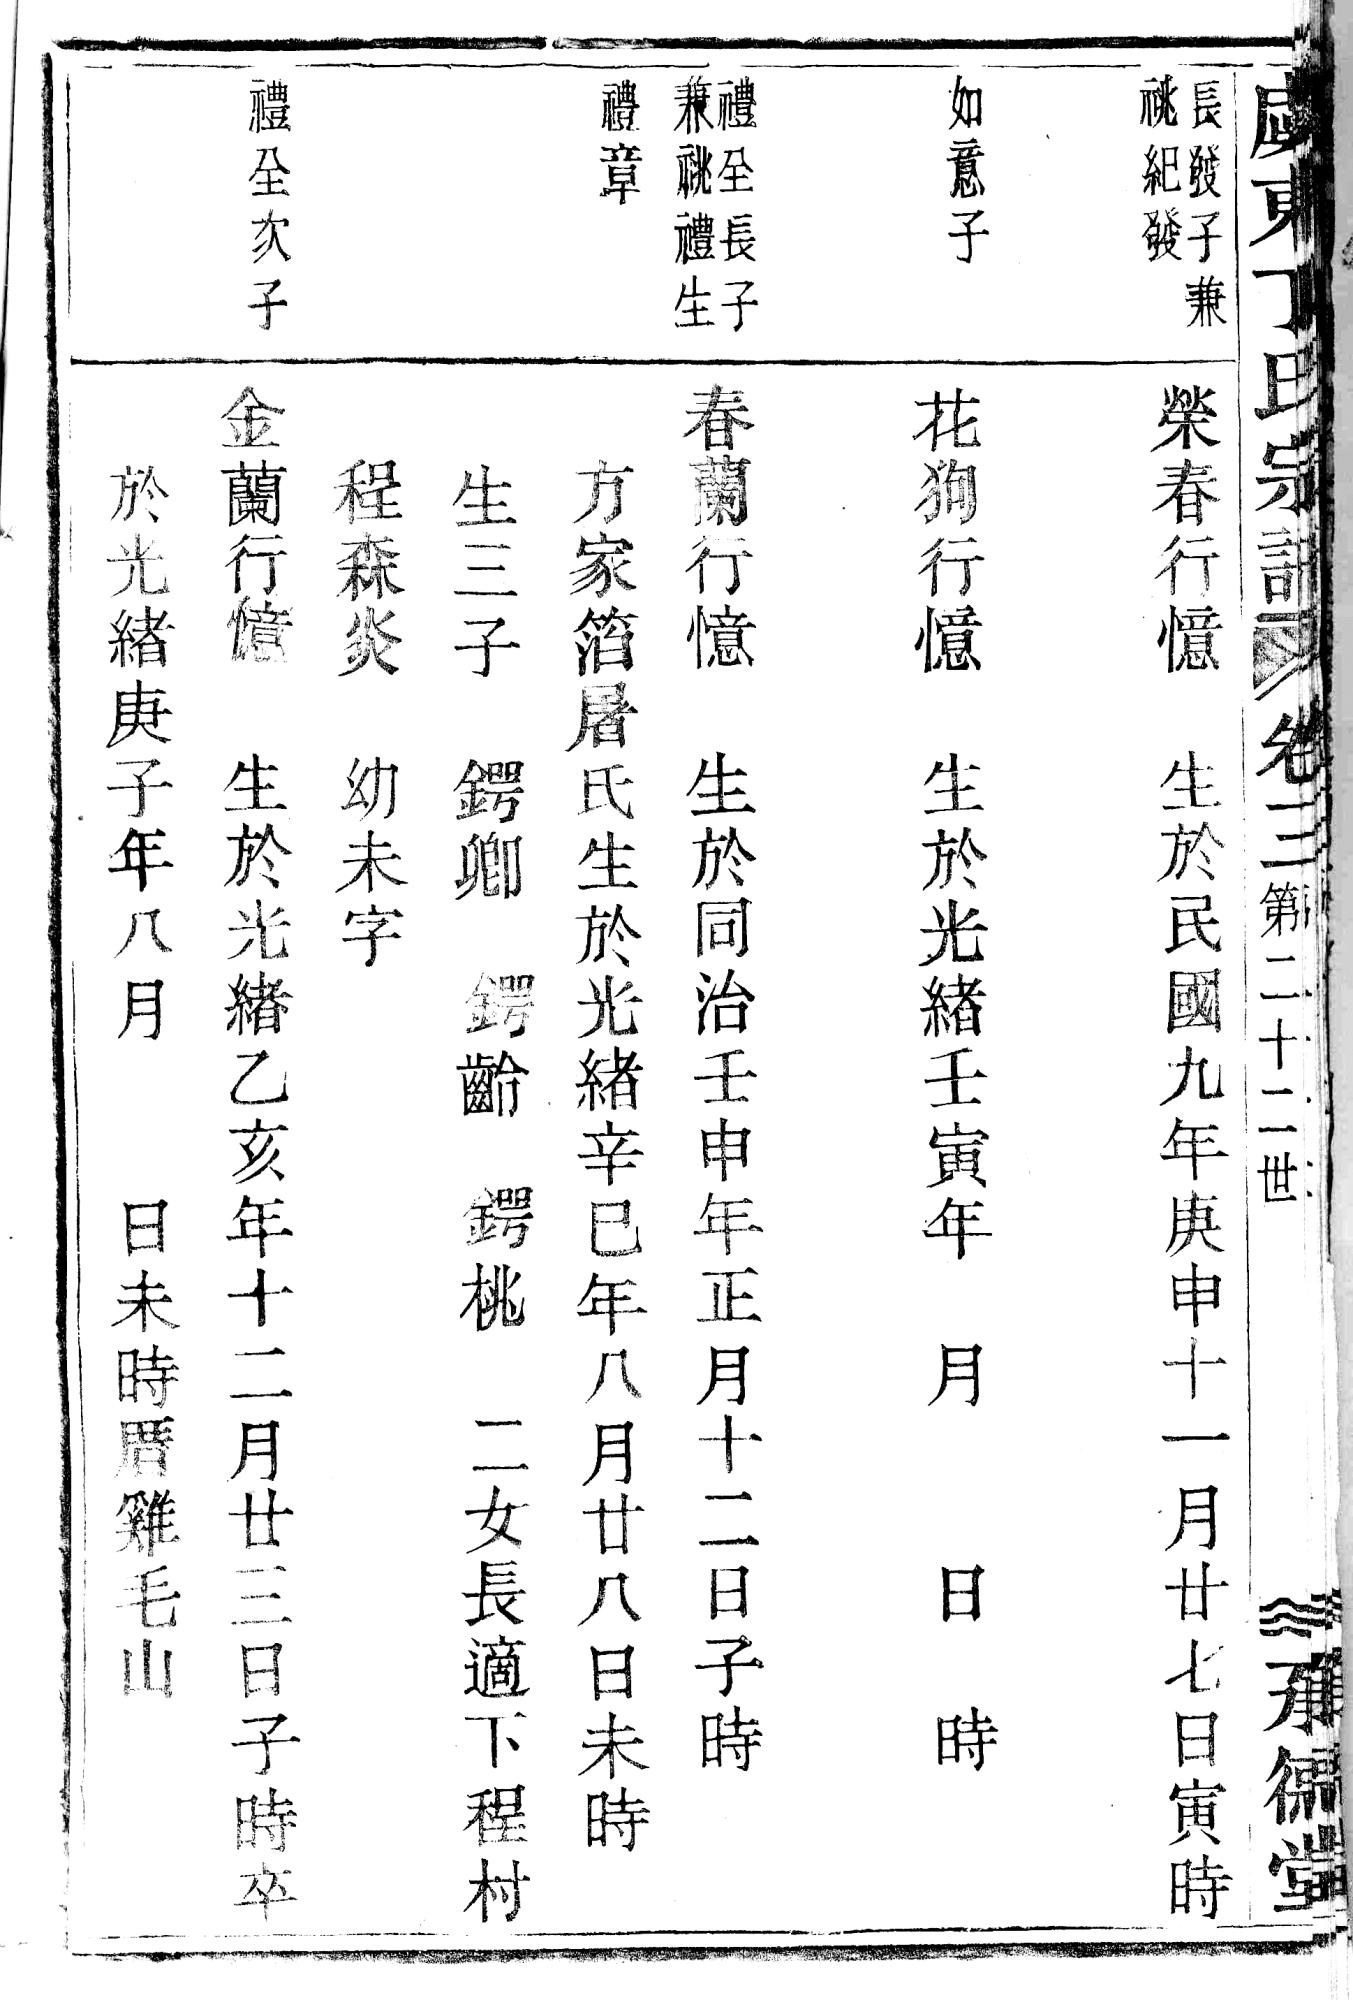 東丁氏宗譜 卷三 第二十二世 承德堂
長發子兼
祧紀發
榮春行憶 生於民國九年庚申十一月廿七日寅時
如意子
花狗行憶 生於光緒壬寅年 月 日 時
禮全長子
兼祧禮生
禮章
春蘭行憶 生於同治壬申年正月十二日子時
方家㴞屠氏生於光緒辛巳年八月廿八日未時
生三子 鍔卿 鍔齡 鍔桃 二女長適下程村
程森炎 幼未字
禮全次子
金蘭行憶 生於光緒乙亥年十二月廿三日子時卒
於光緒庚子年八月 日未時厝雞毛山